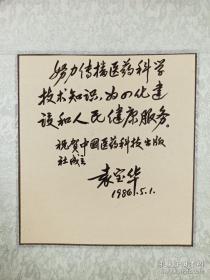 努力传播医药科学
技术知识，为四化建
设和人民健康服务。
祝贺中国医药科技出版
社成立
袁宝华
1986.5.1.